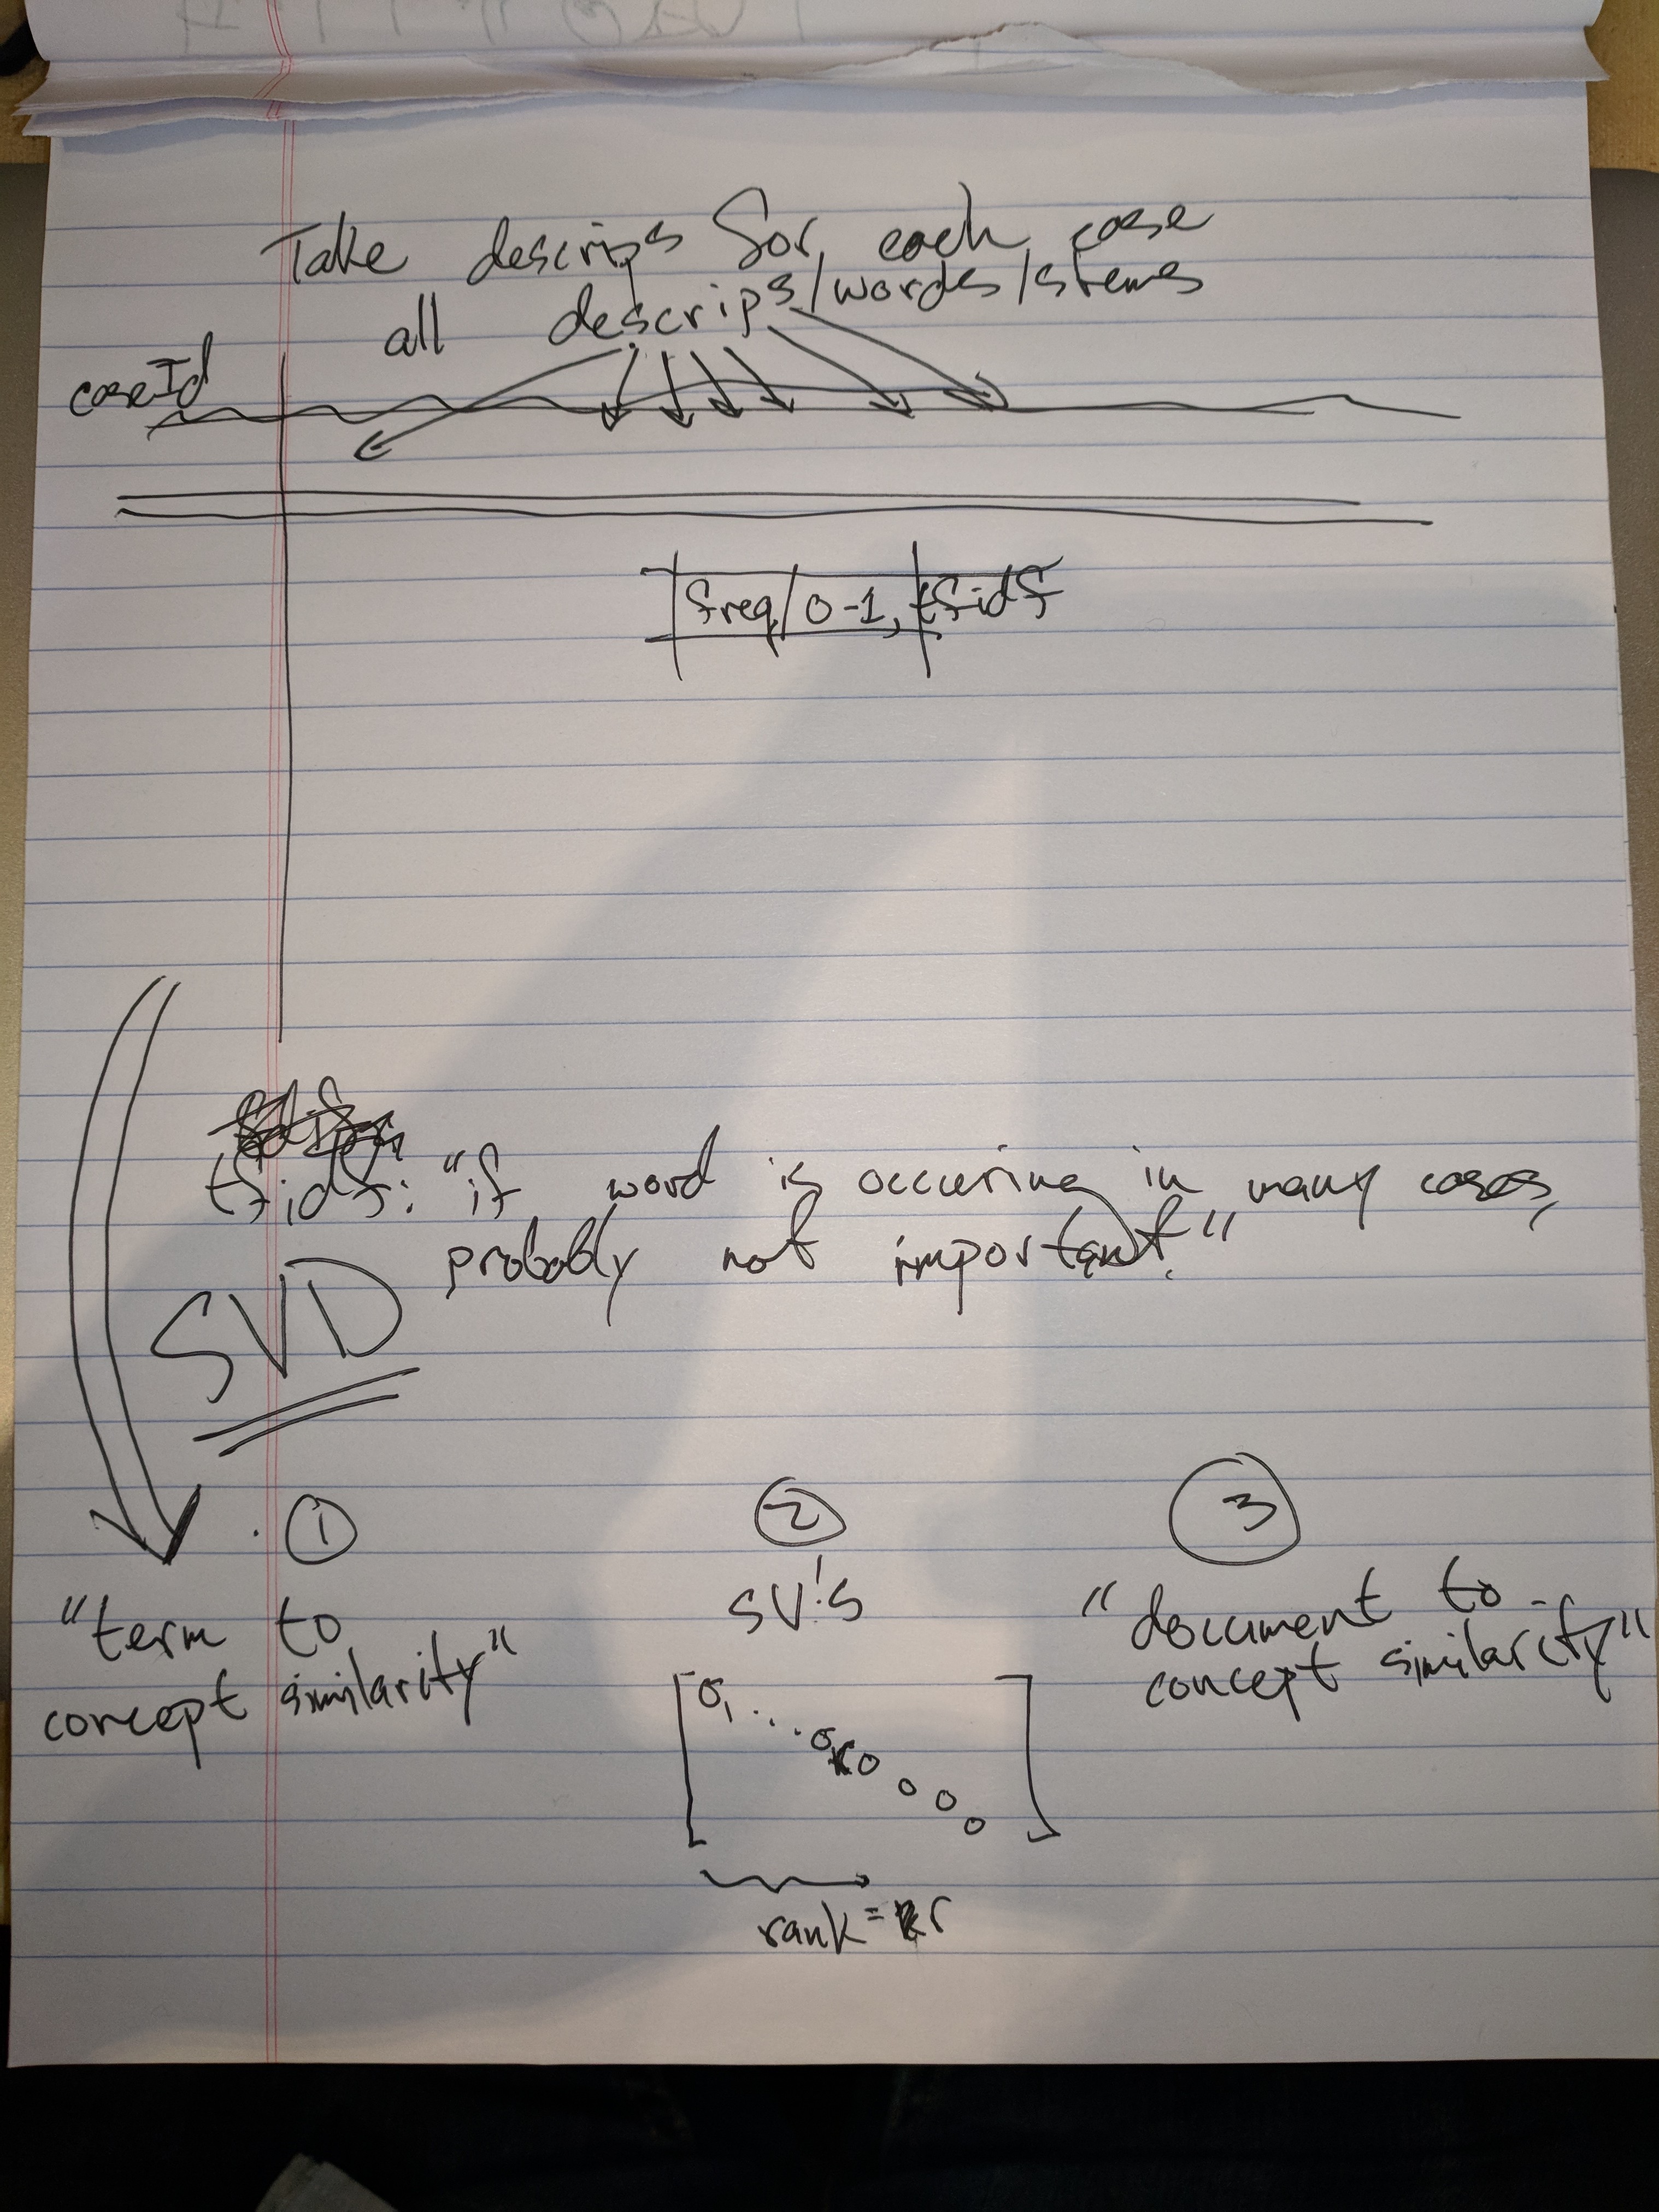 Take descrips for each case
all descrips/words/stems
caseId
freq/0-1, tfidf
tfidf: "if word is occuring in many cases,
probably not important."
SVD
1 2 3
"term to
concept similarity"
SV's
"document to
concept similarity"
σ1 ... σr 0
0
0
0
rank = r